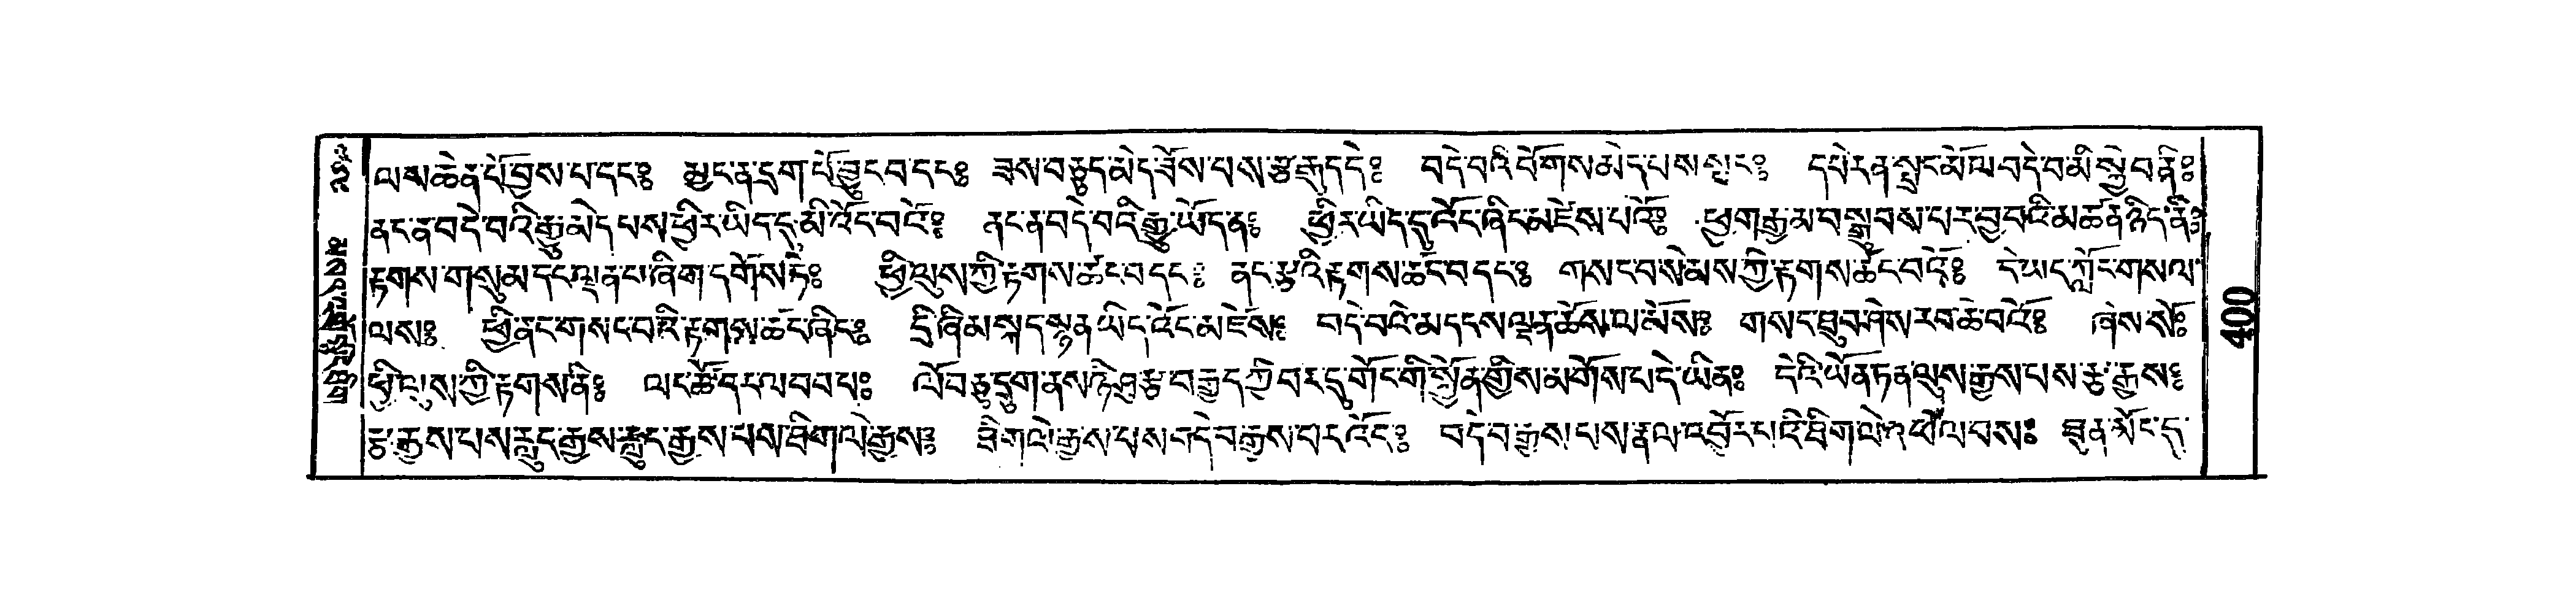 ལས་ཆེན་པོ་བྱས་པ་དང༔ མྱ་ངན་དྲག་པོ་བྱུང་བ་དང༔ ཟས་བཅུད་མེད་ཟོས་པས་རྩ་རྒུད་དེ༔ བདེ་བའི་ཕོགས་མེད་པས་སྤང༔ དཔེར་ན་སྤྲང་མོ་ལ་བདེ་བ་མི་སྐྱེ་བ་ནི༔
ནང་ན་བདེ་བའི་རྒྱུ་མེད་པས་ཕྱིར་ཡིད་དུ་མི་འོང་བའོ༔ ནང་ན་བདེ་བའི་རྒྱུ་ཡོད་ན༔ ཕྱིར་ཡིད་དུ་འོང་ཞིང་མཛེས་པའོ༔ ཕྱག་རྒྱ་མ་བསྒྲུབས་པར་བྱ་བའི་མཚན་ཉིད་ནི༔
རྟགས་གསུམ་དང་ལྡན་པ་ཞིག་དགོས་ཏེ༔ ཕྱི་ལུས་ཀྱི་རྟགས་ཚང་བ་དང༔ ནང་རྩའི་རྟགས་ཚང་བ་དང༔ གསང་བ་སེམས་ཀྱི་རྟགས་ཚང་བའོ༔ དེ་ཡང་ཀློང་གསལ་
ལས༔ ཕྱི་ནང་གསང་བའི་རྟགས་ཚང་ཞིང༔ དྲི་ཞིམ་སྐད་སྙན་ཡིད་འོང་མཛེས༔ བདེ་བའི་མདངས་ལྡན་ཆོས་ལ་མོས༔ གསང་ཐུབ་ཤེས་རབ་ཆེ་བའོ༔ ཞེས་སོ༔
ཕྱི་ལུས་ཀྱི་རྟགས་ནི༔ ལང་ཚོ་དང་ལ་བབ་པ༔ ལོ་བཅུ་དྲུག་ནས་ཉི་ཤུ་རྩ་བརྒྱད་ཀྱི་བར་དུ་གོང་གི་སྐྱོན་གྱིས་མ་གོས་པ་དེ་ཡིན༔ དེའི་ཡོན་ཏན་ལུས་རྒྱས་པས་རྩ་རྒྱས༔
རྩ་རྒྱས་པས་རླུང་རྒྱས་རླུང་རྒྱས་པས་ཐིག་ལེ་རྒྱས༔ ཐིག་ལེ་རྒྱས་པས་བདེ་བ་རྒྱས་པར་འོང༔ བདེ་བ་རྒྱས་པས་རྣལ་འབྱོར་པའི་ཐིག་ལེ་འཕེལ་བས༔ ཐུན་མོང་དུ་